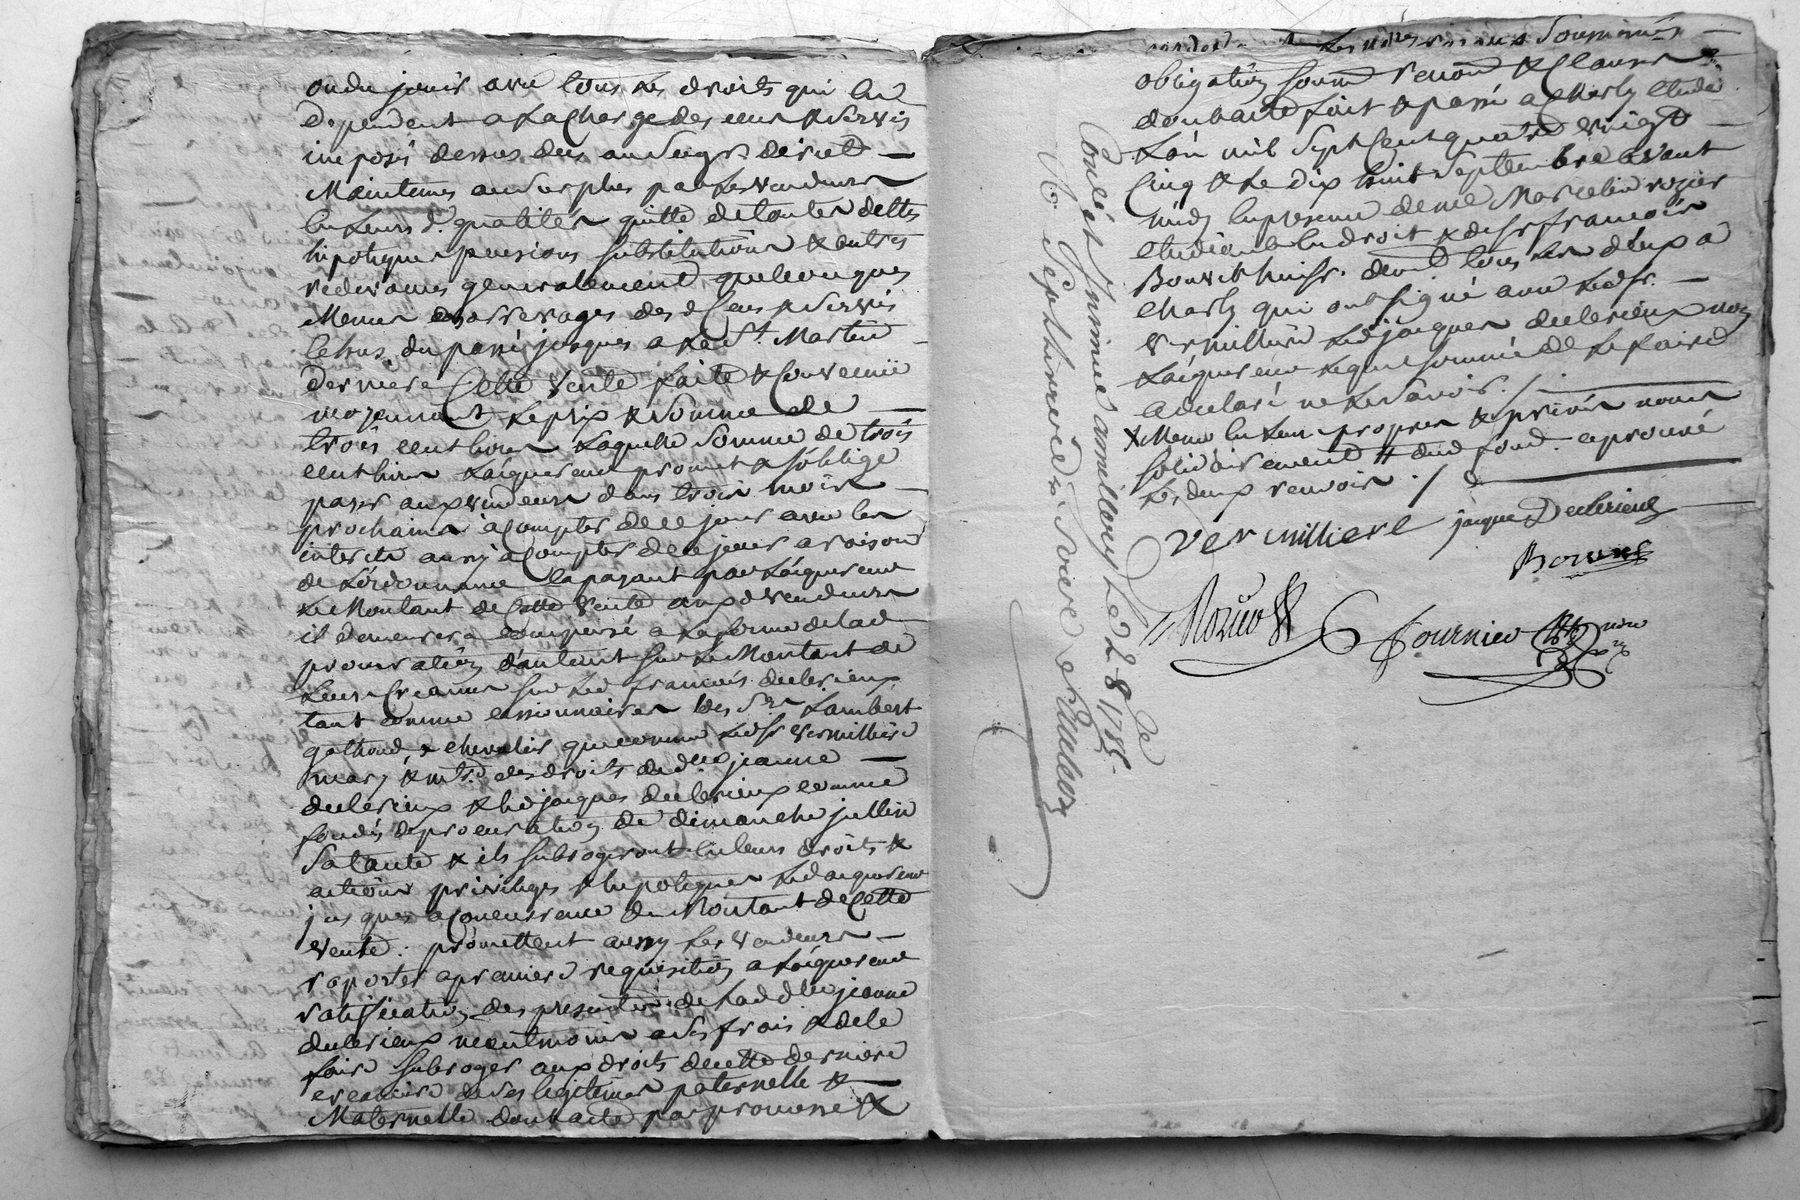 ou du jouir avec tous les droits qui en
dependent a la Charge des cens & servis
imposés dessus deus au Seigr. direct —
Maintenus au Surplus par les vendeurs
en leurs d. qualités quitte de toutes dettes
hipoteques pensions substitutions & autres
redevances generalement quelconques
Meme des arrerages des d Cens & Servis
le tout du passé jusques a la St. Martin
derniere Cette vente faite & Convenüe
moyennant le prix & Somme de —
trois cent livres laquelle Somme de trois
cent livres l'aiquereur promet & s'oblige
payer aux vendeurs dans trois mois —
prochains a Compter de ce jour avec les
interets aussy a Compter de ce jour a raison
de l'ordonnance En payant par l'aiquereur
le Montant de Cette vente aux d vendeurs
il demeurera compensé a la forme de lad
procuration d'autant sur le Montant de
leurs Creances sur led françois declerieux
tant comme cessionnaires des Srs Lambert
gathoud & chevalier que comme led Sr Vermilliere
mary & mtre des droits de dlle jeanne —
declerieux & led jacques declerieux comme
fondés de procuration de dimanche jullin
Sa tante & ils subrogeront en leurs droits &
actions privileges & hipoteques led aiquereur
jusques a Concurrence du Montant de Cette
vente. promettent aussy les vendeurs —
raporter a premiere requisition a l'aiquereur
ratification des presentes de lad dlle jeanne
declerieux neantmoins a ses frais & de le
faire subroger aux droits de cette derniere
creanciere de ses legitimes paternelle & —
Maternelle dont acte par promesse &
obligation soumn renonn & Clauses
dont acte fait & passé a Charly Etude
L'an mil Sept Cent quatre vingt —
Cinq & le dix huit Septembre avant
midy En presence de me Marcelin rozier
etudient En droit & de Sr françois
Bouvet huissr. demt. tous les deux a
Charly qui ont signé avec led Sr. —
Vermilliere led jacques declerieux non
l'aiquereur requis sommé de le faire
a declaré ne le savoir. /
x Meme En leurs propres & privés noms
solidairement # dud fond. aprouvé
les deux renvois. /
Vermilliere jacque Declerieux
Bouvet
Rozier
Fournier
Conlé et Insinué a millery Le 28 7bre 1785.